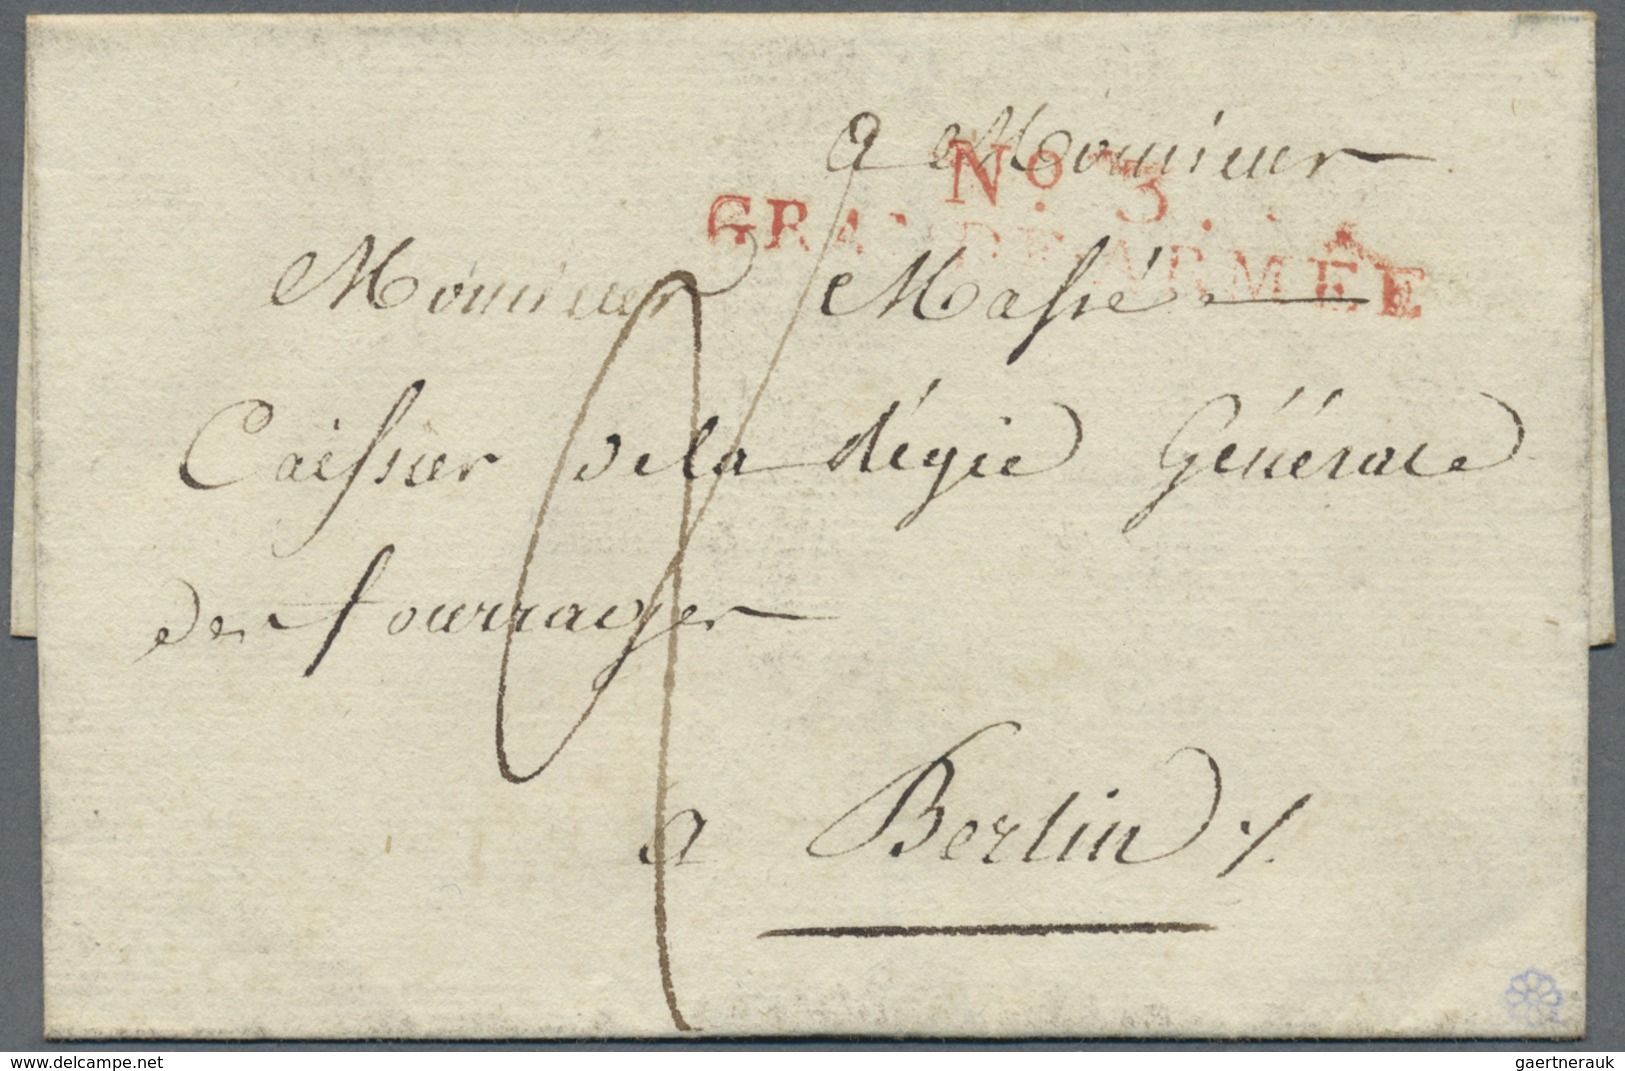 a Monsieur
No. 3.
GRANDE ARMÉE
Monsieur Massé
Caissier de la Régie Générale
des fourrages
a Berlin
the-stamp-store.com
gaertnerauk